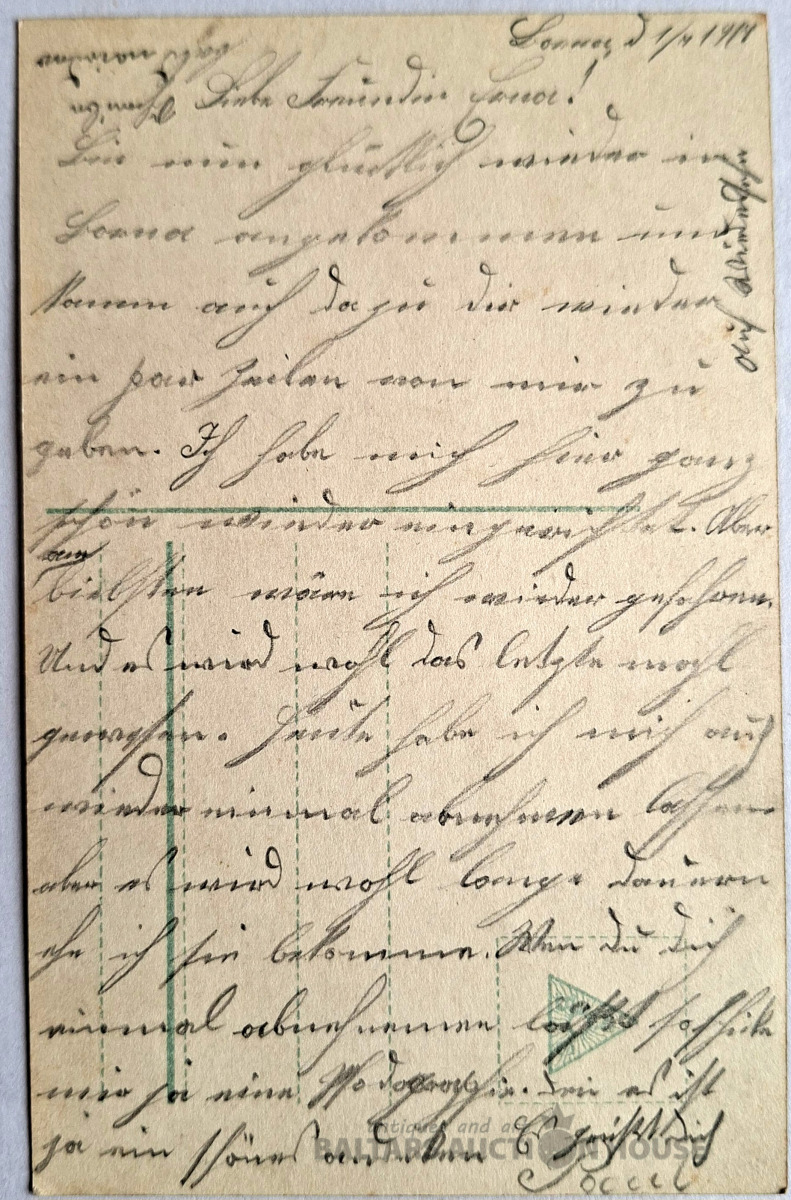 Borna, d 1/4 191
Liebe Freundin Erna!
Bin nun glücklich wieder in
Borna angekommen und
komm auch dazu dir wieder
ein par Zeilen von mir zu
geben. Ich habe mich hier ganz
schön wieder eingerichtet. Aber
am
liebsten wäre ich wieder gefahren.
Und es wird wohl das letzte mahl
gewesen. Heute habe ich mich auch
wieder einmal abnehmen lassen
aber es wird wohl lange dauern
ehe ich sie bekomme. Wen du dich
einmal abnehmen läßt so schicke
mir ja eine den es ist
ja ein schönes andenken Es grüßt dich
auf Wiedersehn
Antiques and a
BALTABS AUCTION HOUSE